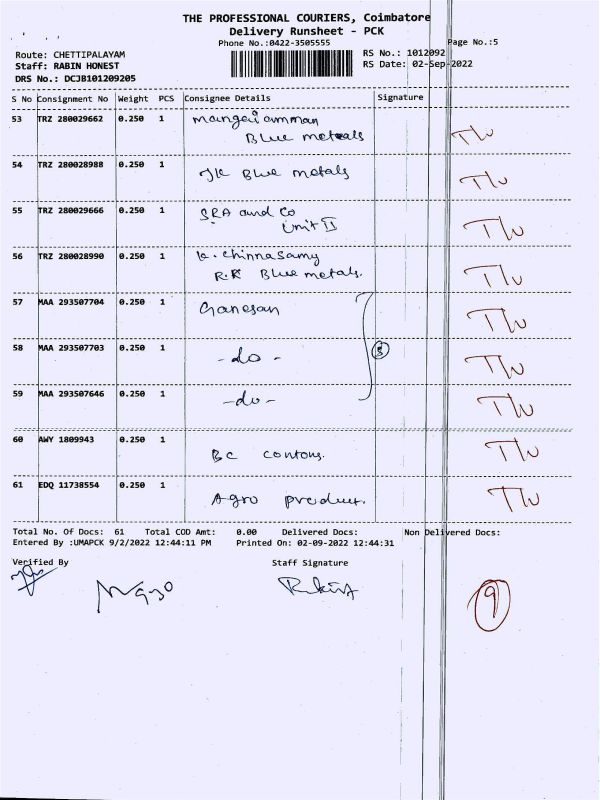 THE PROFESSIONAL COURIERS, Coimbatore
Delivery Runsheet - PCK
Phone No.:0422-3505555
Page No.:5
Route: CHETTIPALAYAM
RS No.: 1012092
Staff: RABIN HONEST
RS Date: 02-Sep-2022
DRS No.: DCJB101209205
S No Consignment No Weight PCS Consignee Details Signature
53 TRZ 280029662 0.250 1 Mangai amman
Blue metals
54 TRZ 280028988 0.250 1 JK Blue metals
55 TRZ 280029666 0.250 1 SRA and Co
Unit II
56 TRZ 280028990 0.250 1 K. Chinnasamy
R.R Blue metals.
57 MAA 293507704 0.250 1 Ganesan
58 MAA 293507703 0.250 1 -do-
59 MAA 293507646 0.250 1 -do-
60 AWY 1809943 0.250 1 BC contons.
61 EDQ 11738554 0.250 1 Agro product.
Total No. Of Docs: 61 Total COD Amt: 0.00 Delivered Docs: Non Delivered Docs:
Entered By :UMAPCK 9/2/2022 12:44:11 PM Printed On: 02-09-2022 12:44:31
Verified By Staff Signature
9